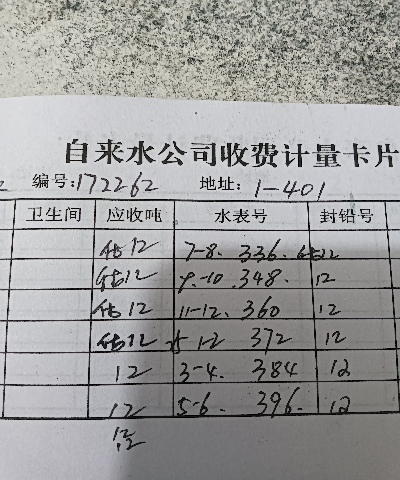 自来水公司收费计量卡片
编号:172262 地址:1-401
卫生间 应收吨 水表号 封铅号
估12 7-8. 336. 12
估12 9-10. 348. 12
估12 11-12. 360 12
估12 1-2 372 12
12 3-4. 384 12
12 5-6. 396. 12
12